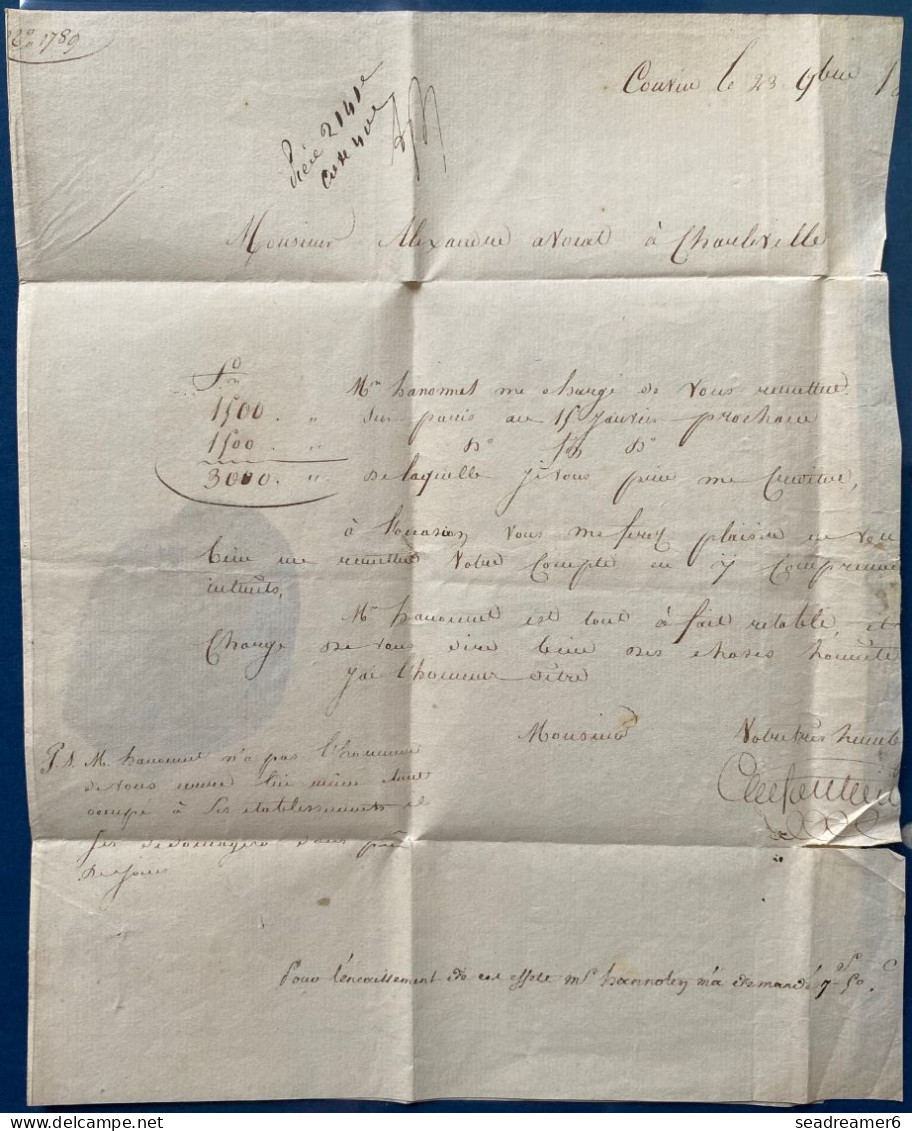 1789
Couvin le 23 9bre
Pièce 2141e
Monsieur Alexandre avocat à Charleville
1500. " Mr hanonnet me charge de vous remettre
1500. " sur paris au 15 Janvier prochain
do do
3000. " de laquelle je vous prie me Créditer,
à l'occasion vous me ferez plaisir de vou
bien me remettre votre Compte en y Comprenan
intérêts,
Mr hanonnet est tout à fait retabli et
Charge de vous dire bien des choses honnête
j'ai l'honneur d'être
Monsieur Votre très humb
P.S. Mr. hanonnet n'a pas l'honneur
de vous lui même étant
occupé à ses etablissements et
dans peu
de jours
Pour l'encaissement de cet effete mr hannoten m'a demandé 7 f 50. C
seadreamer6
delcampe.net